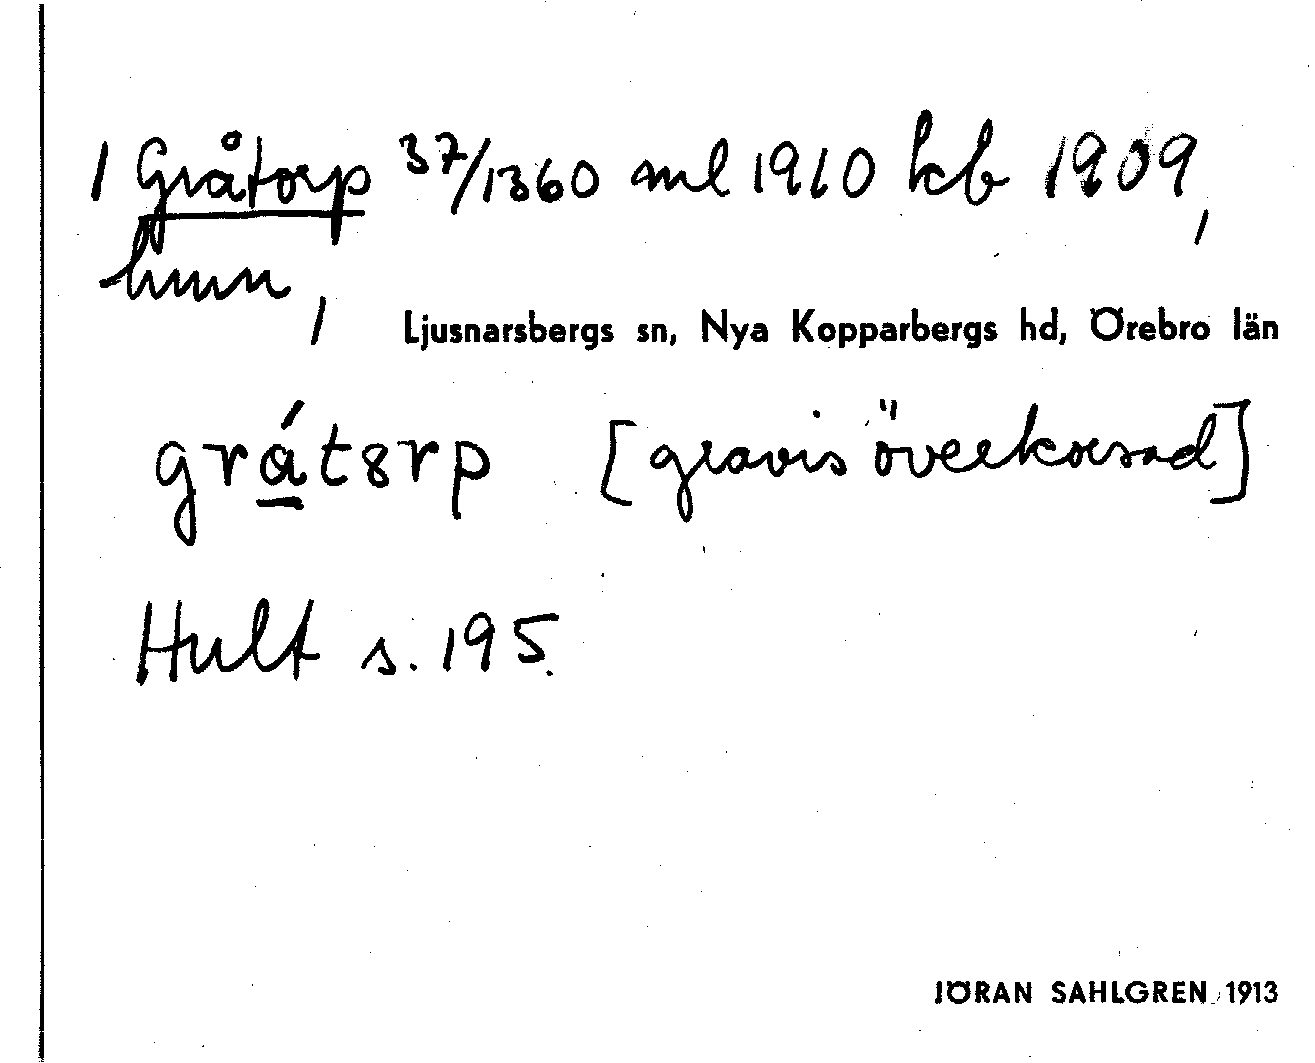 1 Gråtorp 37/1360 ml 1910 kb 1909,
hmn,
Ljusnarsbergs sn, Nya Kopparbergs hd, Örebro län
grátorp [gravis överkorsad]
Hult s. 195.
JÖRAN SAHLGREN 1913